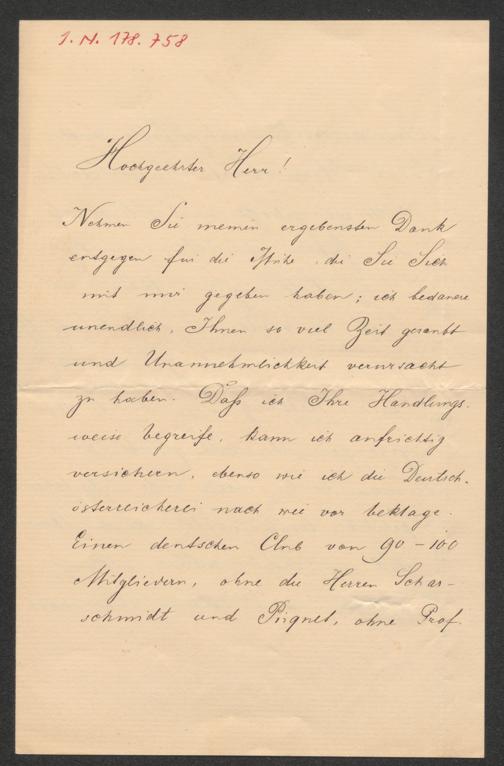 I. N. 178.758
Hochgeehrter Herr!
Nehmen Sie meinen ergebensten Dank
entgegen für die Mühe die Sie Sich
mit mir gegeben haben; ich bedauere
unendlich, Ihnen so viel Zeit geraubt
und Unannehmlichkeit verursacht
zu haben. Daß ich Ihre Handlungs-
weise begreife, kann ich aufrichtig
versichern, ebenso wie ich die Deutsch-
österreicherei nach wie vor beklage.
Einen deutschen Club von 90 – 100
Mitgliedern, ohne die Herren Schar-
schmidt und Piquet, ohne Prof.